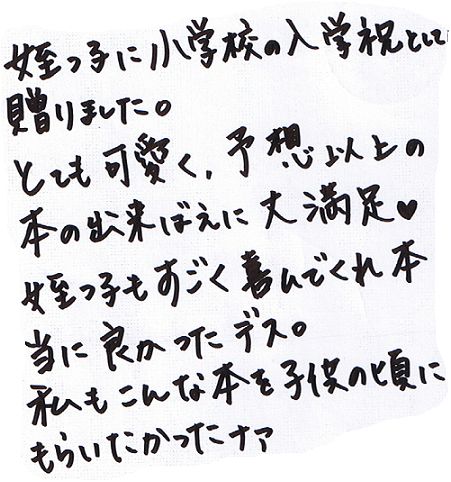 姪っ子に小学校の入学祝として
贈りました。
とても可愛く、予想以上の
本の出来ばえに大満足♥
姪っ子もすごく喜んでくれ本
当に良かったデス。
私もこんな本を子供の頃に
もらいたかったナァ